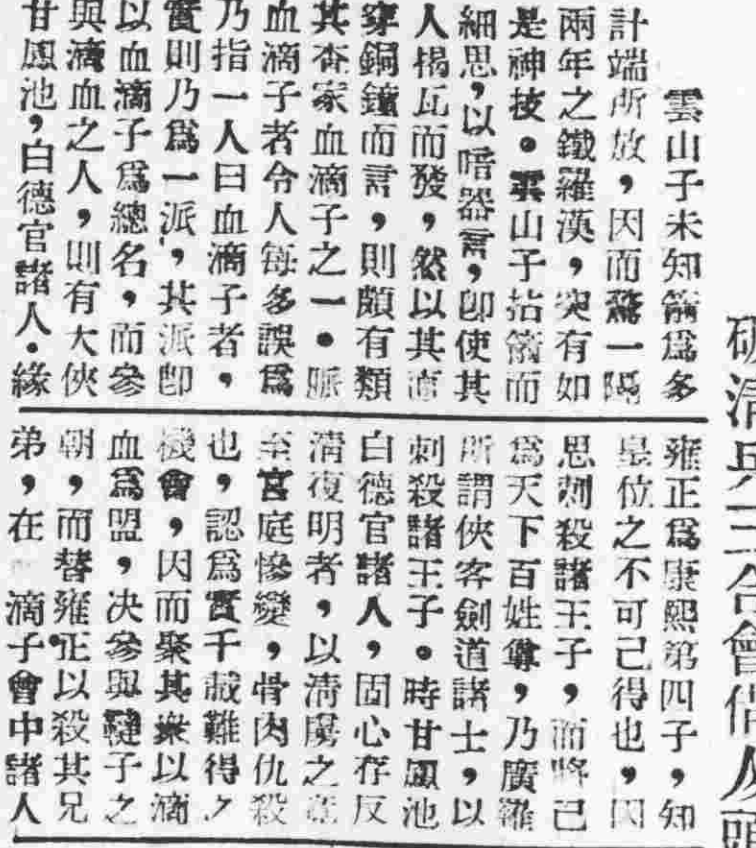 破清兵三合會借人頭
雲山子未知箭爲多
計端所放，因而驚一隔
兩年之鐵羅漢，突有如
是神技。雲山子拈箭而
細思，以暗器言，即使其
人揭瓦而發，然以其直
穿銅鐘而言，則頗有類
其杳家血滴子之一。脈
血滴子者令人每多誤爲
乃指一人曰血滴子者，
實則乃爲一派，其派即
以血滴子爲總名，而參
與滴血之人，則有大俠
甘鳳池，白德官諸人。緣
雍正爲康熙第四子，知
皇位之不可己得也，因
思刺殺諸王子，而將己
爲天下百姓尊，乃廣羅
所謂俠客劍道諸士，以
刺殺諸王子。時甘鳳池
白德官諸人，固心存反
清復明者，以清虜之
至宮庭慘變，骨肉仇殺
也，認爲實千載難得之
機會，因而聚其衆以滴
血爲盟，决參與韃子之
朝，而替雍正以殺其兄
弟，在 滴子會中諸人